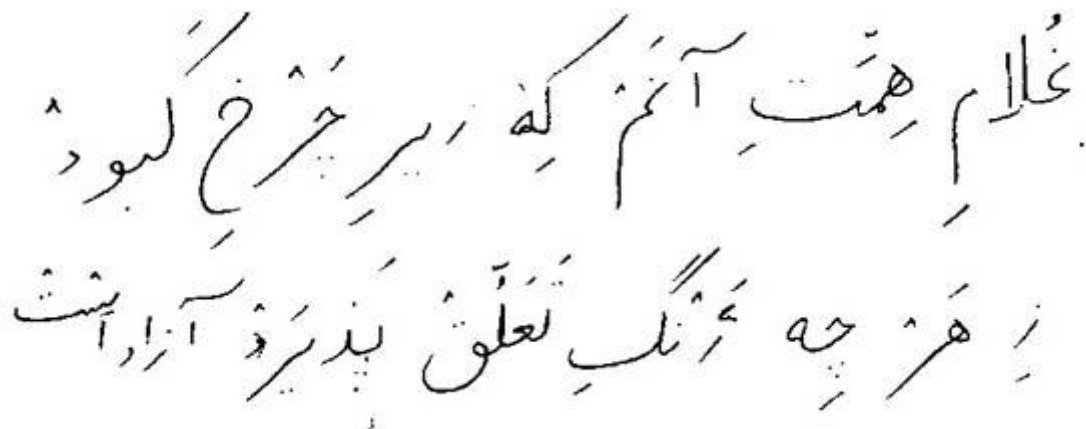 غُلامِ هِمَّتِ آنَمْ کِهْ زیرِ چَرْخِ کَبودْ
زِ هَرْ چِه رَنْگِ تَعَلُّقْ پَذیرَدْ آزاد اَسْتْ